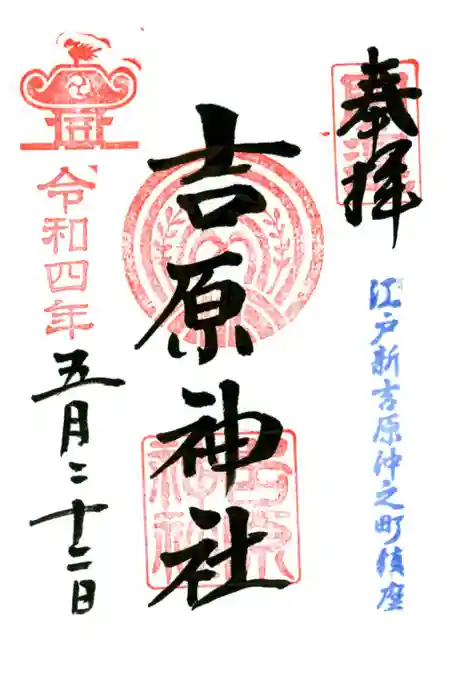 奉拝
江戸新吉原仲之町鎮座
吉原神社
吉原
神社
令和四年
五月二十二日